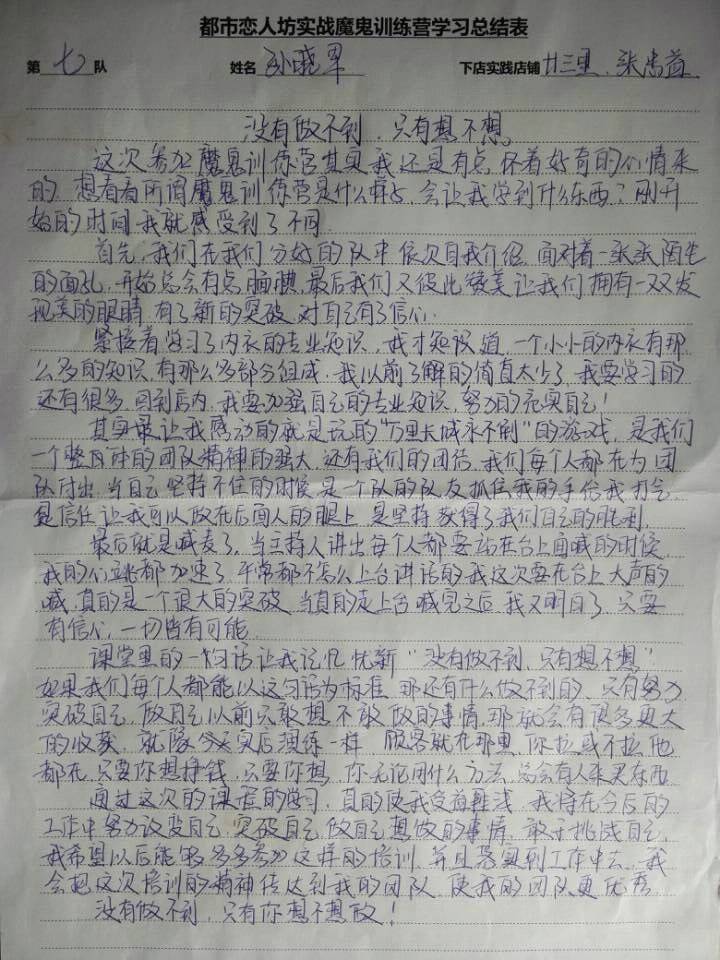 都市恋人坊实战魔鬼训练营学习总结表
第 七 队 姓名 孙晓军 下店实践店铺 廿三里、张尚益
没有做不到，只有想不想。
这次参加魔鬼训练营其实我还是有点怀着好奇的心情来
的，想看看所谓魔鬼训练营是什么样子，会让我学到什么东西？刚开
始的时间我就感受到了不同
首先，我们在我们分好的队中依次自我介绍，面对着一张张陌生
的面孔，开始总会有点腼腆，最后我们又彼此赞美让我们拥有一双发
现美的眼睛，有了新的突破，对自己有了信心。
紧接着学习了内衣的专业知识，我才知道，一个小小的内衣有那
么多的知识，有那么多部分组成，我以前了解的简直太少了，我要学习的
还有很多，回到店内，我要加强自己的专业知识，努力的充实自己！
其实最让我感动的就是玩的“万里长城永不倒”的游戏，是我们
一个整团队的团队精神的强大，还有我们的团结，我们每个人都在为团
队付出，当自己坚持不住的时候是一个队的队友抓住我的手给我打气，
是信任让我可以放在后面人的腿上，是坚持获得了我们自己的胜利。
最后就是喊麦了，当主持人讲出每个人都要站在台上面喊的时候
我的心跳都加速了，平常都不怎么上台讲话的我这次要在台上大声的
喊，真的是一个很大的突破，当真的走上台喊完之后，我又明白了，只要
有信心，一切皆有可能
课堂里的一句话让我记忆忧新“没有做不到，只有想不想”
如果我们每个人都能以这句话为标准，那还有什么做不到的，只有努力
突破自己，做自己以前只敢想不敢做的事情，那就会有很多更大
的收获，就像今天实店演练一样，顾客就在那里，你拉或不拉他
都在，只要你想挣钱，只要你想，你无论用什么方法，总会有人来买东西
通过这次的课程的学习，真的使我受益匪浅，我将在今后的
工作中努力改变自己，突破自己，做自己想做的事情，敢于挑战自己，
我希望以后能够多多参加这样的培训，并且落实到工作中去，我
会把这次培训的精神传达到我的团队，使我的团队更优秀
没有做不到，只有你想不想做！